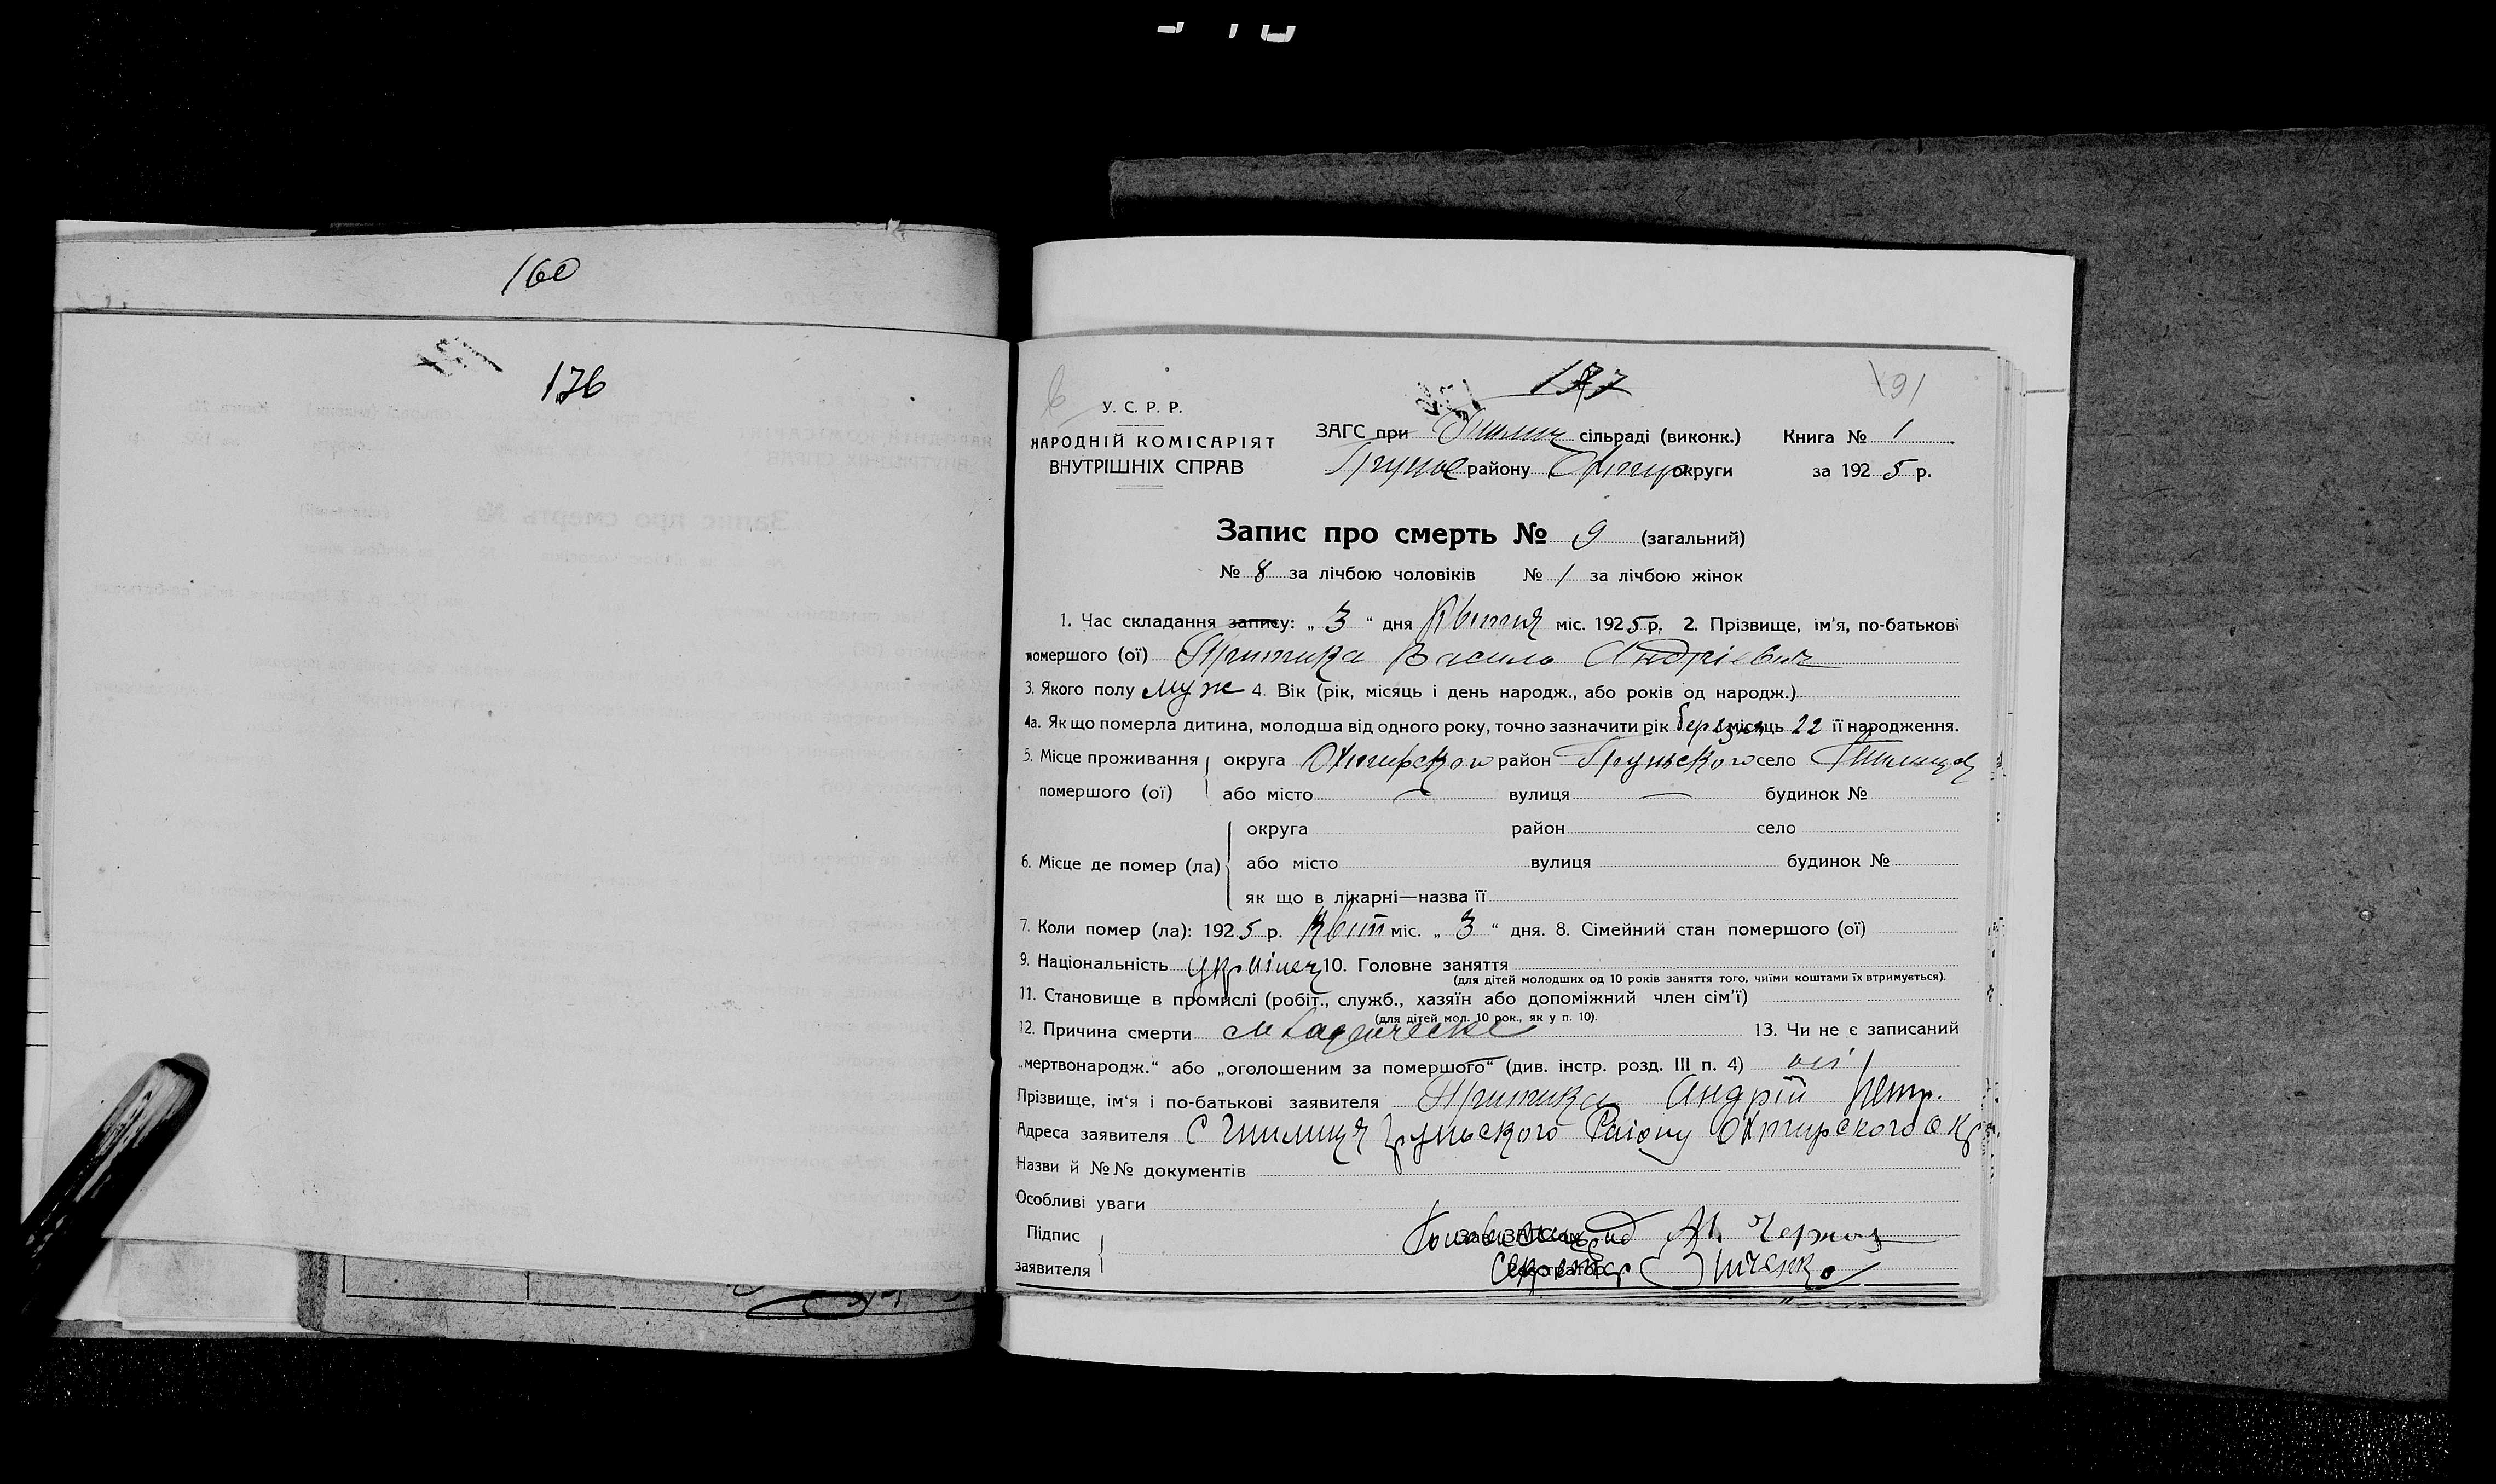 160
176
177
191
У. С. Р. Р.
НАРОДНІЙ КОМІСАРІЯТ
ВНУТРІШНІХ СПРАВ
ЗАГС при Гнилиц сільраді (виконк.) Книга № 1
Грунсь району Охтир округи за 1925 р.
Запис про смерть № 9 (загальний)
№ 8 за лічбою чоловіків № 1 за лічбою жінок
1. Час складання запису: „ 3 “ дня Квітня міс. 1925 р. 2. Прізвище, ім'я, по-батькові
помершого (ої) Притика Василь Андрієвич
3. Якого полу муж 4. Вік (рік, місяць і день народж., або років од народж.)
4а. Як що померла дитина, молодша від одного року, точно зазначити рік березня місяць 22 її народження.
5. Місце проживання округа Охтирского район Груньского село Гнилиця
помершого (ої) або місто — вулиця — будинок №
округа район село
6. Місце де помер (ла) або місто вулиця будинок №
як що в лікарні—назва її
7. Коли помер (ла): 1925 р. Квіт міс. „ 3 “ дня. 8. Сімейний стан помершого (ої)
9. Національність українец 10. Головне заняття
(для дітей молодших од 10 років заняття того, чиїми коштами їх втримується).
11. Становище в промислі (робіт., служб., хазяїн або допоміжний член сім'ї)
(для дітей мол. 10 рок., як у п. 10).
12. Причина смерти младенческе 13. Чи не є записаний
„мертвонародж.“ або „оголошеним за помершого“ (див. інстр. розд. III п. 4) ні
Прізвище, ім'я і по-батькові заявителя Притика Андрій Петр.
Адреса заявителя С Гнилиця Груньского Району Охтирского окр
Назви й №№ документів
Особливі уваги
Підпис
заявителя
Зав. ЗАГСом
Реєстратор
Секретар